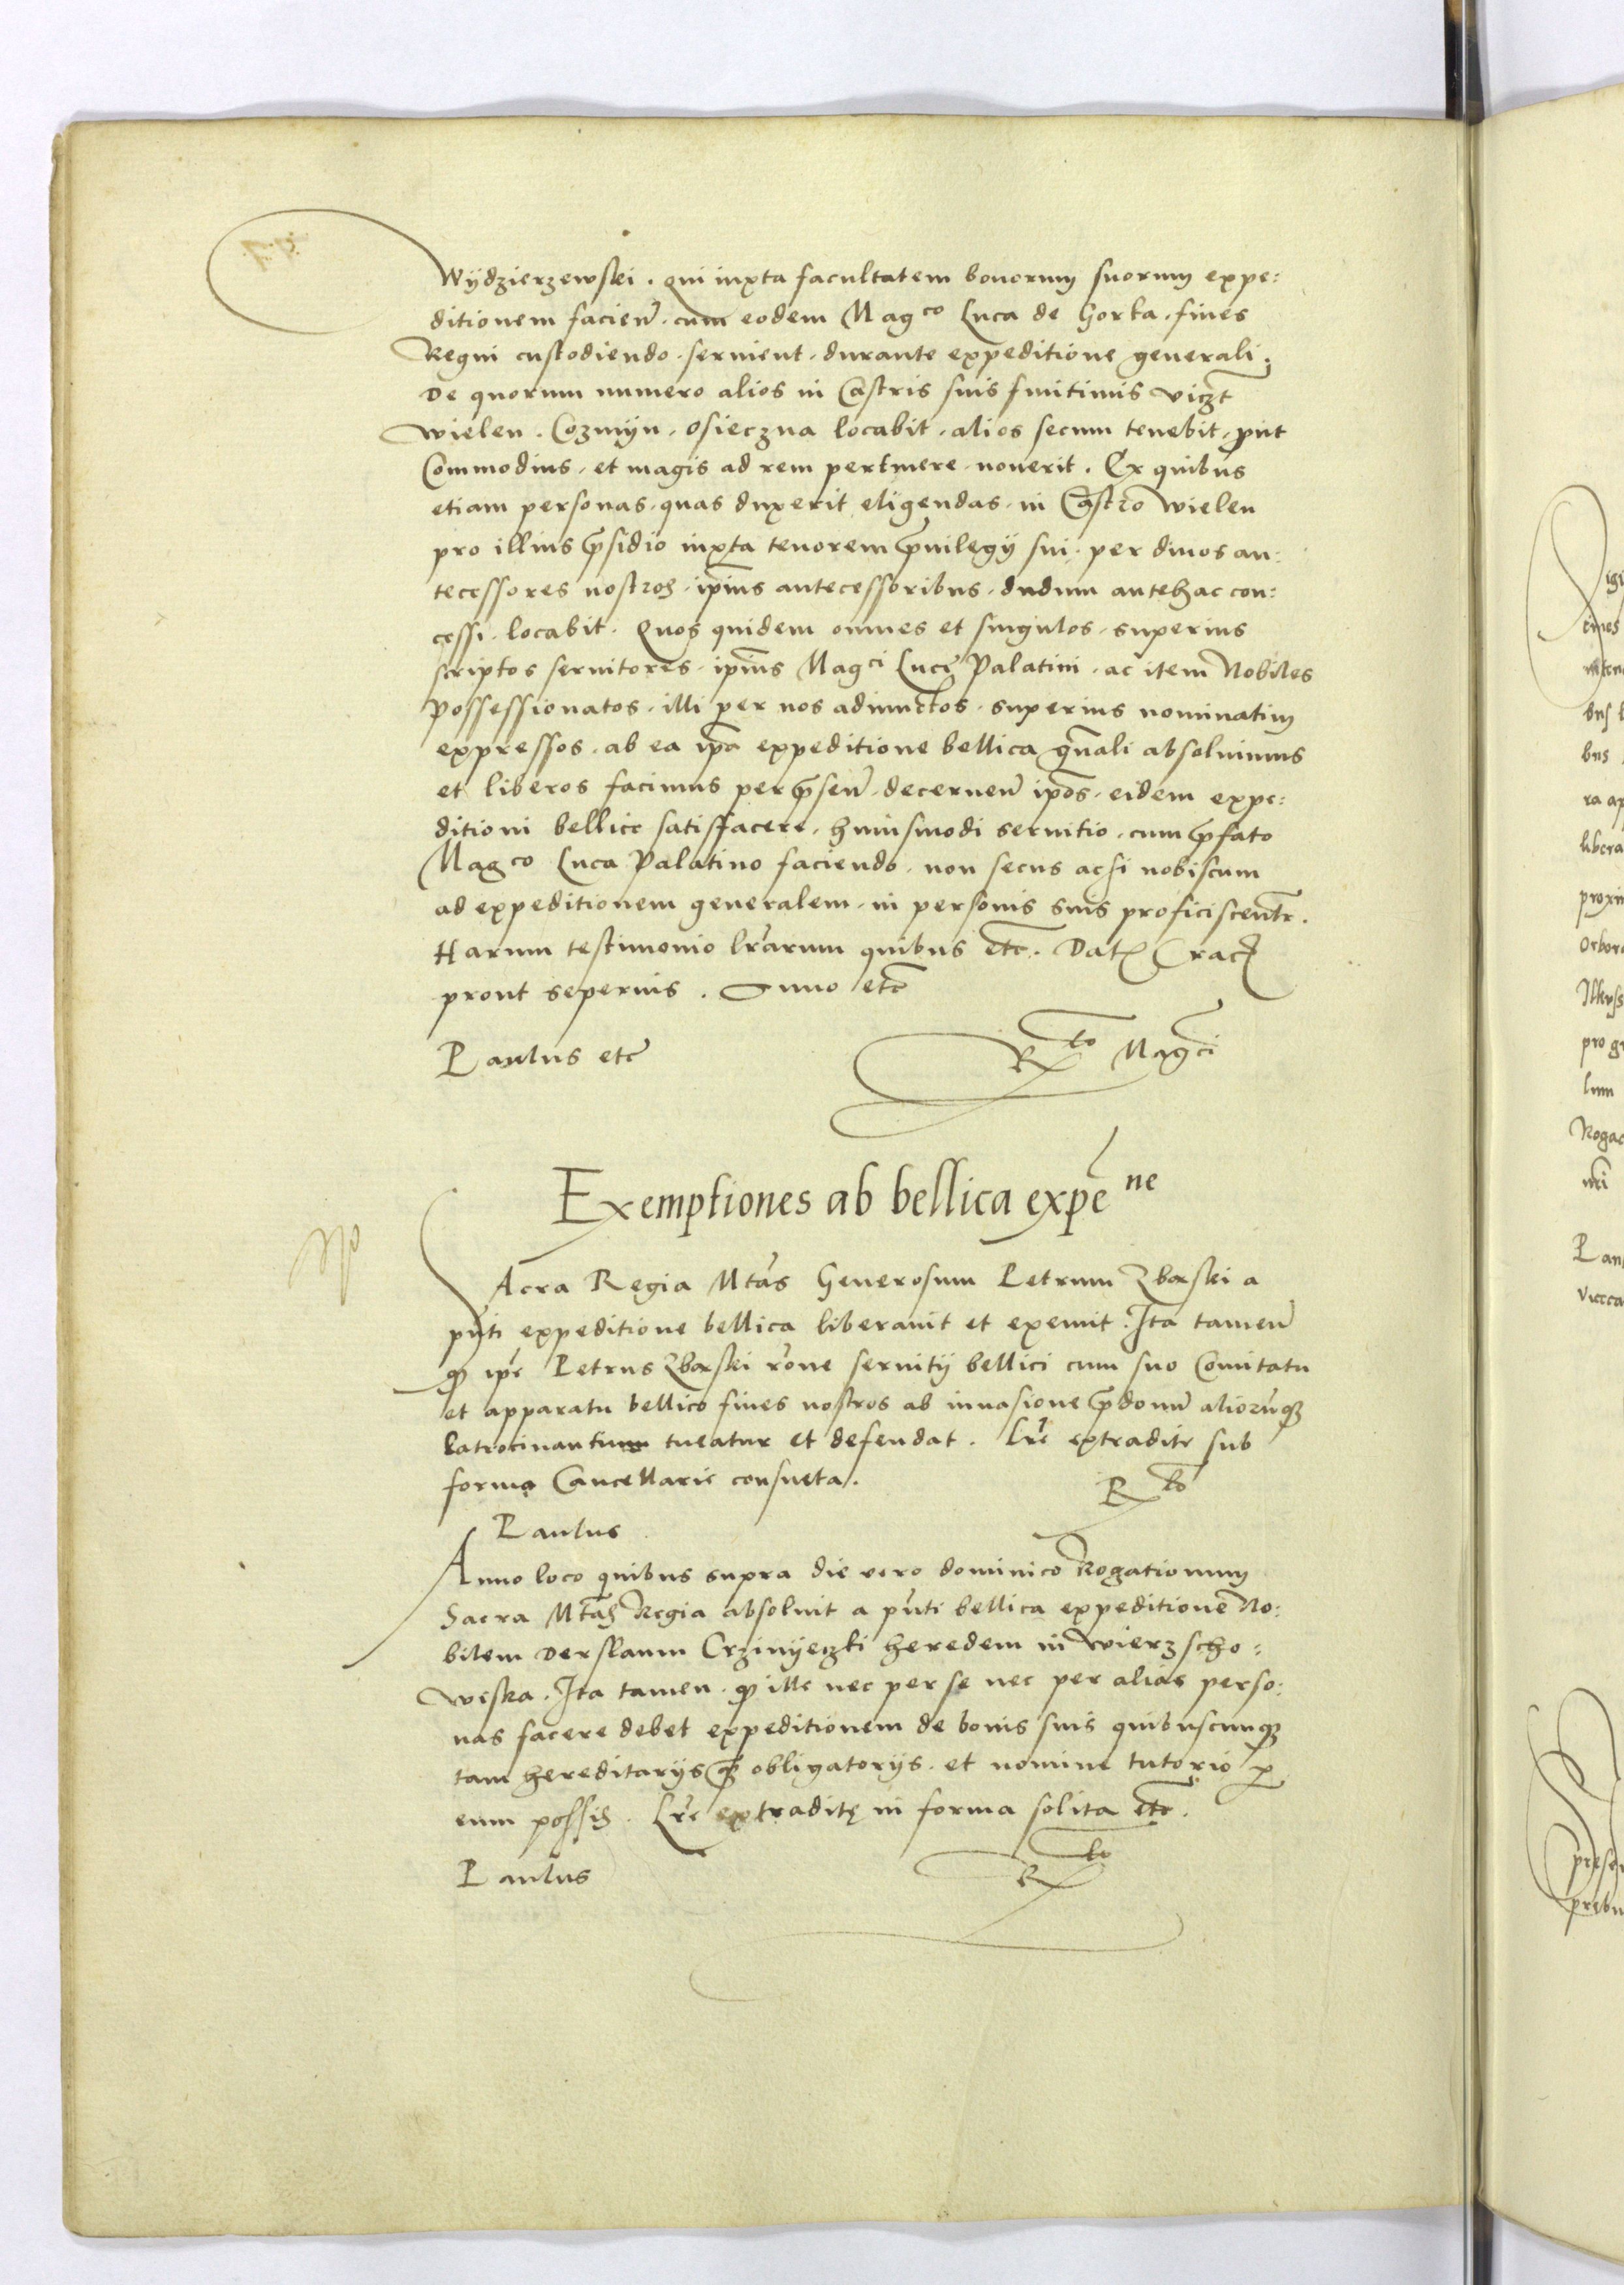 Wydzierzewski. qui iuxta facultatem bonorum suorum expe:
ditionem facien̄. cum eodem Magco Luca de Gorka. fines
Regni custodiendo. seruient. durante expeditione generali.
De quorum numero alios in Castris suis finitimis viczt
Wielen. Cozmyn. Osieczna locabit. alios secum tenebit. put
Commodius. et magis ad rem pertinere nouerit. Ex quibus
etiam personas. quas duxerit eligendas. in Castro Wielen
pro illius p̄sidio iuxta tenorem p̄uilegij sui. per diuos an:
tecessores nostros. ipius antecessoribus. dudum antehac con:
cessi. locabit. Quos quidem omnes et singulos. superius
scriptos seruitores. ipius Magci Luce Palatini. ac item Nobiles
possessionatos. illi per nos adiunctos. superius nominatim
expressos. ab ea ipa expeditione bellica gn̄ali absoluimus
et liberos facimus per p̄sen̄. decernen̄ ipos. eidem expe:
ditioni bellice satisfacere. huiusmodi seruitio. cum p̄fato
Magco Luca Palatino faciendo. non secus acsi nobiscum
ad expeditionem generalem. in personis suis proficiscentr.
Harum testimonio lr̄arum quibus etc. Dat Crac
prout seperius. Anno etc
Paulus etc Rto Magci
Exemptiones ab bellica expēne
SAcra Regia Mtas Generosum Petrum Zborski a
pn̄ti expeditione bellica liberauit et exemit. Ita tamen
q ipe Petrus Zborski rōne seruitij bellici cum suo Comitatu
et apparatu bellico fines nostros ab inuasione p̄donum aliorūq
latrocinantium tueatur et defendat. Lr̄e extradite sub
forma Cancellarie consueta.
Rto
Paulus
Anno loco quibus supra die vero dominico Rogationum
Sacra Mtas Regia absoluit a pn̄ti bellica expeditione No:
bilem Derslaum Crzinyeczki heredem in Wierzscho:
wiska. Ita tamen. q ille nec per se nec per alias perso:
nas facere debet expeditionem de bonis suis quibuscunq
tam hereditarijs q̄ obligatorijs. et nomine tutorio p
eum possis. Lr̄e extraditę in forma solita etc.
Paulus Rto